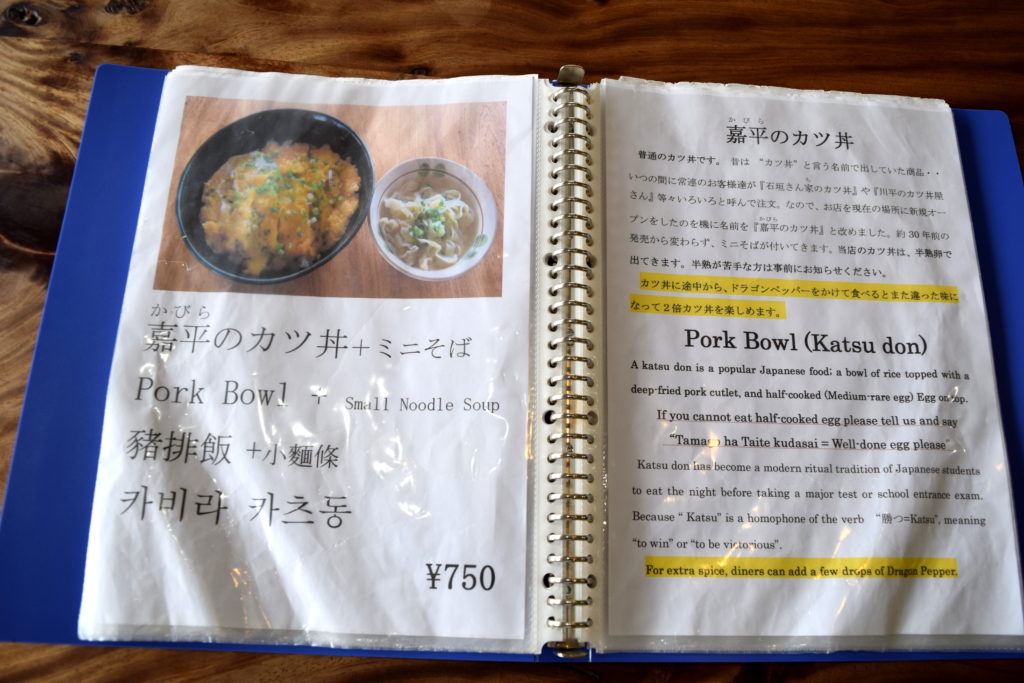 かびら
嘉平のカツ丼+ミニそば
Pork Bowl + Small Noodle Soup
豬排飯 +小麵條
카비라 카츠동
¥750
かびら
嘉平のカツ丼
普通のカツ丼です。 昔は “カツ丼” と言う名前で出していた商品・・
いつの間に常連のお客様達が『石垣さん家のカツ丼』や『川平のカツ丼屋
さん』等々いろいろと呼んで注文。なので、お店を現在の場所に新規オー
かびら
プンをしたのを機に名前を『嘉平のカツ丼』と改めました。約 30 年前の
発売から変わらず、ミニそばが付いてきます。当店のカツ丼は、半熟卵で
出てきます。半熟が苦手な方は事前にお知らせください。
カツ丼に途中から、ドラゴンペッパーをかけて食べるとまた違った味に
なって２倍カツ丼を楽しめます。
Pork Bowl (Katsu don)
A katsu don is a popular Japanese food; a bowl of rice topped with a
deep-fried pork cutlet, and half-cooked (Medium-rare egg) Egg on top.
If you cannot eat half-cooked egg please tell us and say
“Tamago ha Taite kudasai = Well-done egg please”
Katsu don has become a modern ritual tradition of Japanese students
to eat the night before taking a major test or school entrance exam.
Because “ Katsu” is a homophone of the verb “勝つ=Katsu”, meaning
“to win” or “to be victorious”.
For extra spice, diners can add a few drops of Dragon Pepper.